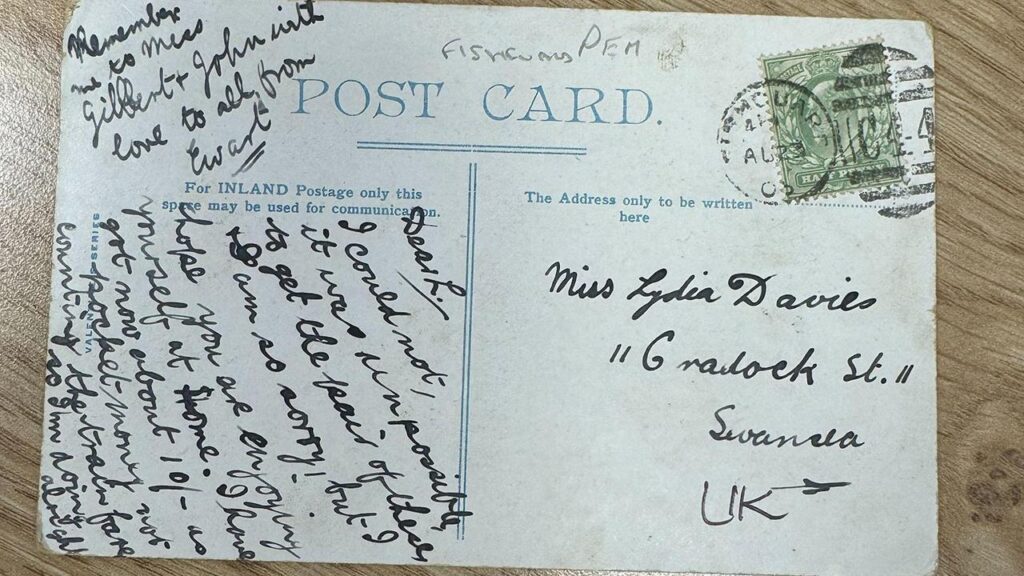 Remember
me to Miss
Gilbert & John with
love to all from
Ewart
PEM
POST CARD.
For INLAND Postage only this
space may be used for communication.
The Address only to be written
here
Dear L,
I could not,
it was impossible,
to get the pair of these
but I
am so sorry!
I hope you are enjoying
yourself at home. I have
got now about 10/- as
pocket money not
counting the train fare
so I'm doing
alright
VALENTINES SERIES
Miss Lydia Davies
"Cradock St."
Swansea
UK
AU
HALF